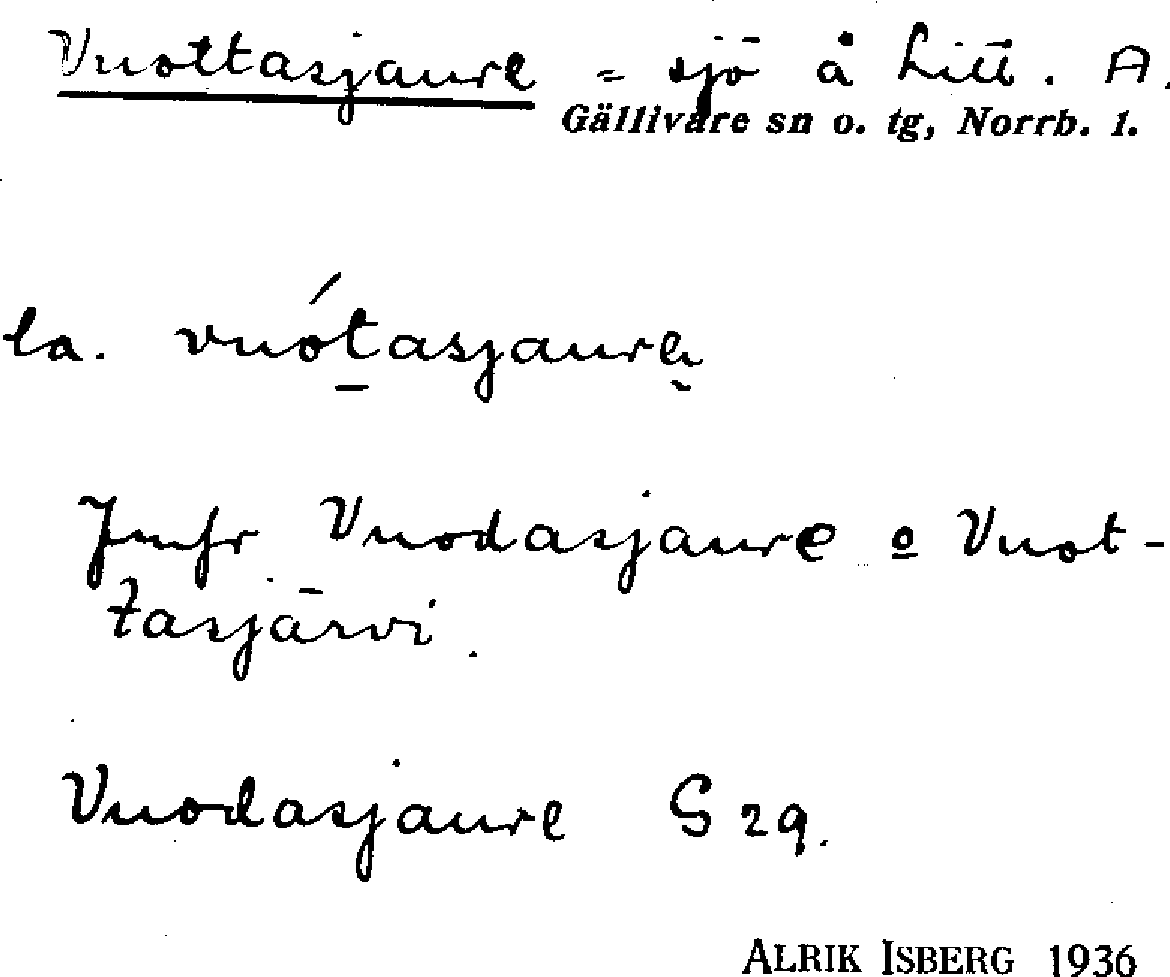 Vuottasjaure = sjö å Litt. A.
Gällivare sn o. tg, Norrb. l.
la. vuótasjaure
Jmfr Vuodasjaure o Vuot-
tasjärvi.
Vuodasjaure G 29.
ALRIK ISBERG 1936